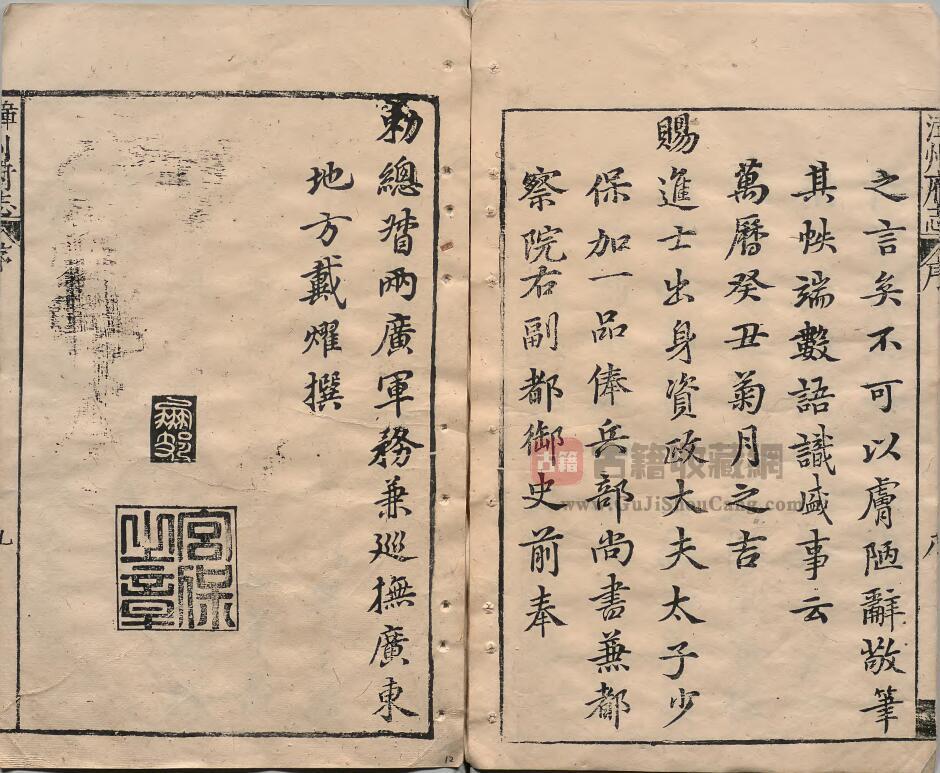 漳州府志
序
八
之言矣不可以膚陋辭敬筆
其帙端數語識盛事云
萬曆癸丑菊月之吉
賜進士出身資政大夫太子少
保加一品俸兵部尚書兼都
察院右副都御史前奉
勅總督兩廣軍務兼巡撫廣東
地方戴燿撰
宮保之章
漳州府志
序
九
12
古籍
古籍收藏網
www.GuJiShouCang.com